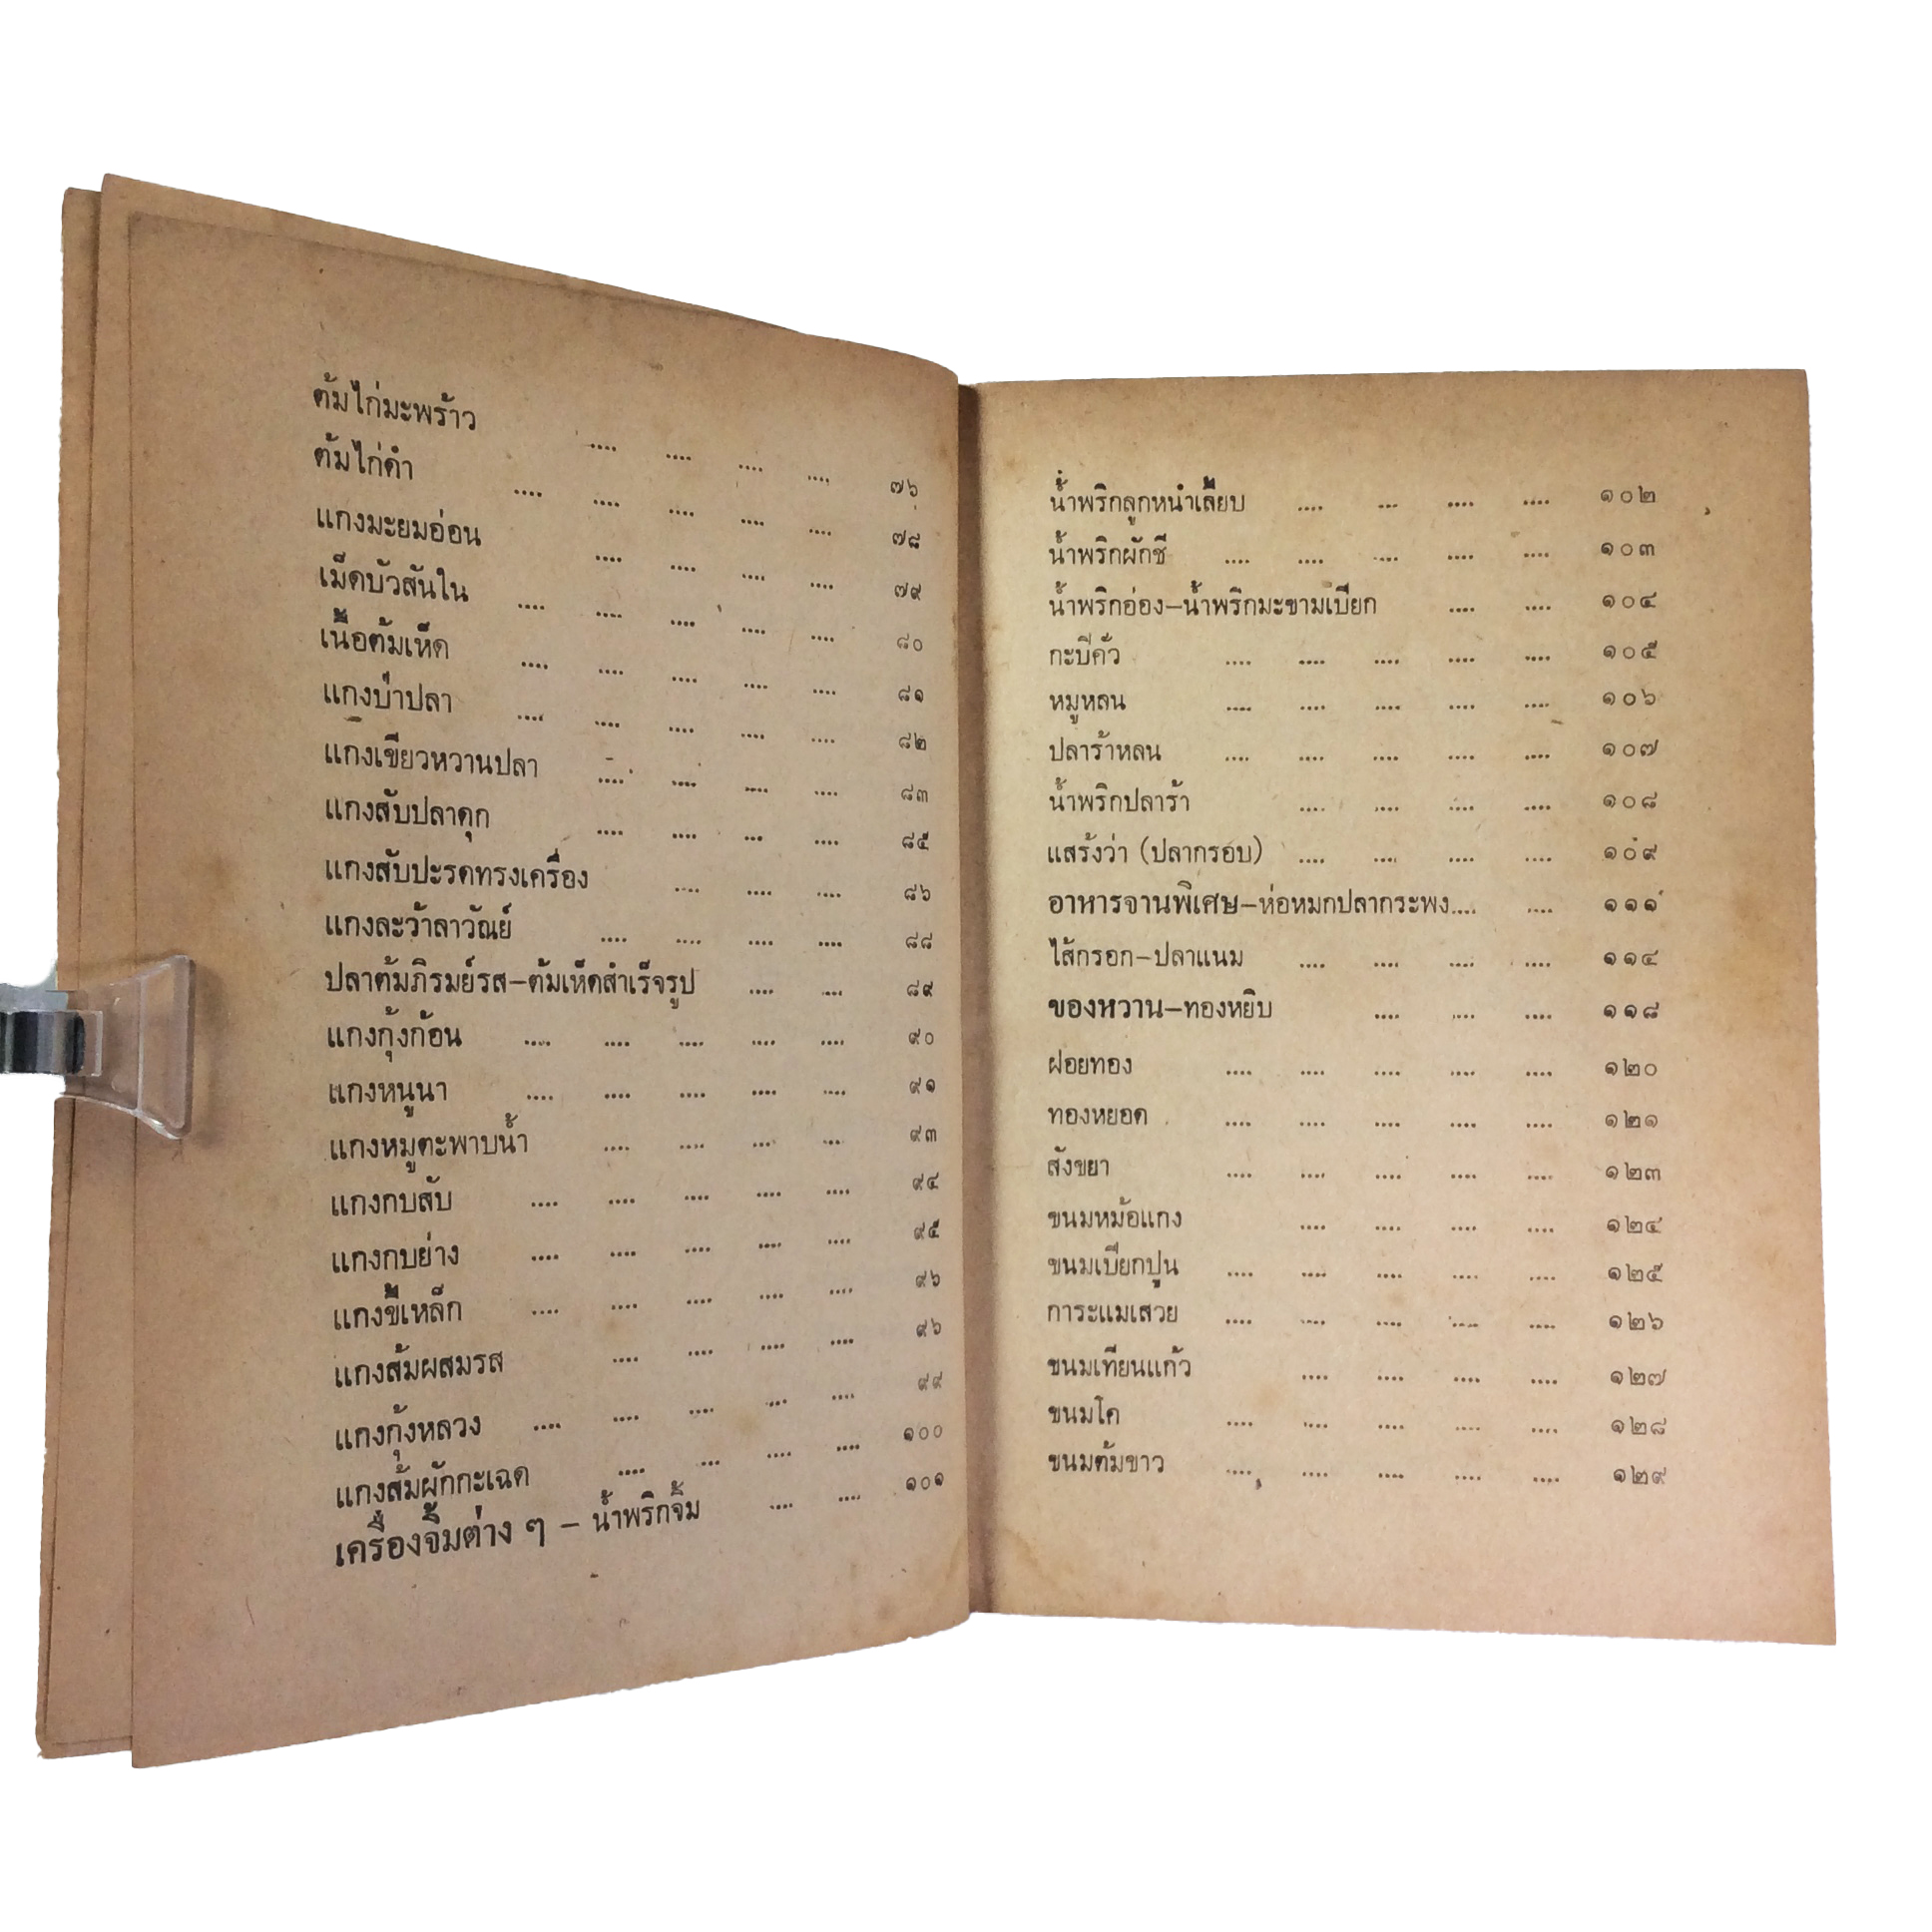 ต้มไก่มะพร้าว .... .... .... .... ๗๖
ต้มไก่ดำ .... .... .... .... .... ๗๘
แกงมะยมอ่อน .... .... .... .... ๗๙
เม็ดบัวสันใน .... .... .... .... .... ๘๐
เนื้อต้มเห็ด .... .... .... .... .... ๘๑
แกงบ๋าปลา .... .... .... .... .... ๘๒
แกงเขียวหวานปลา .... .... .... .... ๘๓
แกงสับปลาดุก .... .... .... .... ๘๕
แกงสับปะรดทรงเครื่อง .... .... .... ๘๖
แกงละว้าลาวัณย์ .... .... .... .... ๘๘
ปลาต้มภิรมย์รส–ต้มเห็ดสำเร็จรูป .... .... ๘๙
แกงกุ้งก้อน .... .... .... .... .... ๙๐
แกงหนูนา .... .... .... .... .... ๙๑
แกงหมูตะพาบน้ำ .... .... .... .... ๙๓
แกงกบสับ .... .... .... .... .... ๙๔
แกงกบย่าง .... .... .... .... .... ๙๕
แกงขี้เหล็ก .... .... .... .... .... ๙๖
แกงส้มผสมรส .... .... .... .... ๙๖
แกงกุ้งหลวง .... .... .... .... .... ๙๙
แกงส้มผักกะเฉด .... .... .... .... ๑๐๐
เครื่องจิ้มต่าง ๆ – น้ำพริกจิ้ม .... .... ๑๐๑
น้ำพริกลูกหนำเลี้ยบ .... .... .... .... ๑๐๒
น้ำพริกผักชี .... .... .... .... .... ๑๐๓
น้ำพริกอ่อง–น้ำพริกมะขามเปียก .... .... ๑๐๔
กะปิคั่ว .... .... .... .... .... ๑๐๕
หมูหลน .... .... .... .... .... ๑๐๖
ปลาร้าหลน .... .... .... .... .... ๑๐๗
น้ำพริกปลาร้า .... .... .... .... ๑๐๘
แสร้งว่า (ปลากรอบ) .... .... .... .... ๑๐๙
อาหารจานพิเศษ–ห่อหมกปลากระพง.... .... ๑๑๑
ไส้กรอก–ปลาแนม .... .... .... .... ๑๑๔
ของหวาน–ทองหยิบ .... .... .... ๑๑๘
ฝอยทอง .... .... .... .... .... ๑๒๐
ทองหยอด .... .... .... .... .... ๑๒๑
สังขยา .... .... .... .... .... ๑๒๓
ขนมหม้อแกง .... .... .... .... ๑๒๔
ขนมเปียกปูน .... .... .... .... .... ๑๒๕
กาะแมเสวย .... .... .... .... .... ๑๒๖
ขนมเทียนแก้ว .... .... .... .... ๑๒๗
ขนมโค .... .... .... .... .... ๑๒๘
ขนมต้มขาว .... .... .... .... .... ๑๒๙